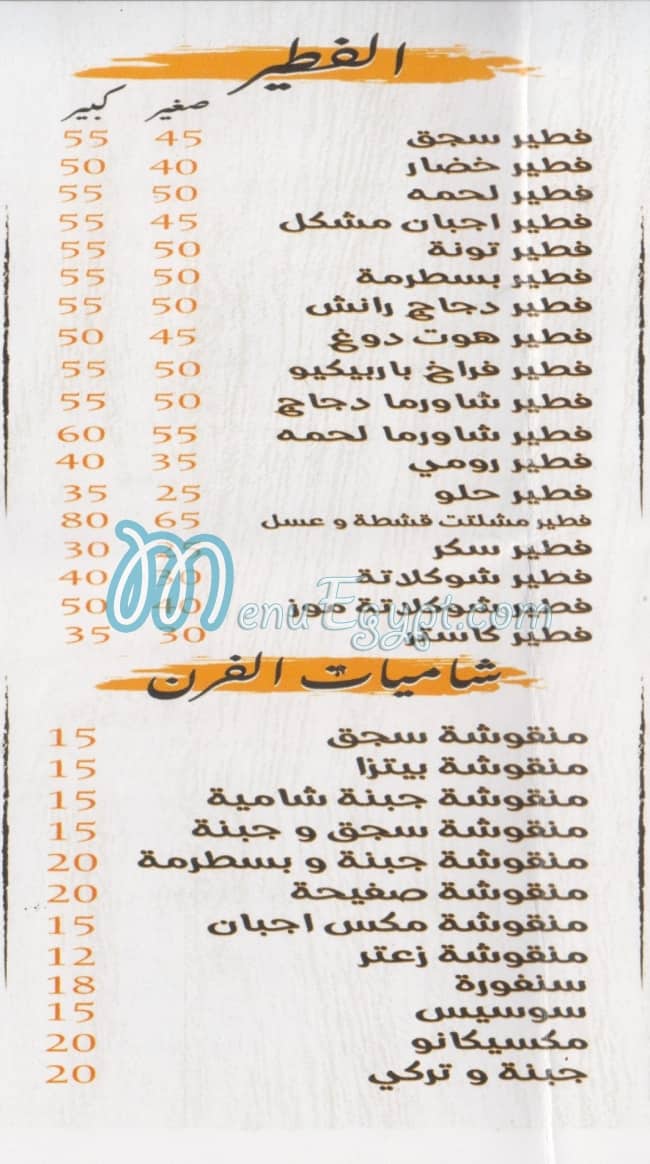 الفطير
صغير كبير
فطير سجق 45 55
فطير خضار 40 50
فطير لحمه 50 55
فطير اجبان مشكل 45 55
فطير تونة 50 55
فطير بسطرمة 50 55
فطير دجاج رانش 50 55
فطير هوت دوغ 45 50
فطير فراخ باربيكيو 50 55
فطير شاورما دجاج 50 55
فطير شاورما لحمه 55 60
فطير رومي 35 40
فطير حلو 25 35
فطير مشلتت قشطة و عسل 65 80
فطير سكر 25 30
فطير شوكلاتة 30 40
فطير شوكلاتة موز 40 50
فطير كاستر 30 35
MenuEgypt.com
شاميات الفرن
منقوشة سجق 15
منقوشة بيتزا 15
منقوشة جبنة شامية 15
منقوشة سجق و جبنة 15
منقوشة جبنة و بسطرمة 20
منقوشة صفيحة 20
منقوشة مكس اجبان 15
منقوشة زعتر 12
سنفورة 18
سوسيس 15
مكسيكانو 20
جبنة و تركي 20